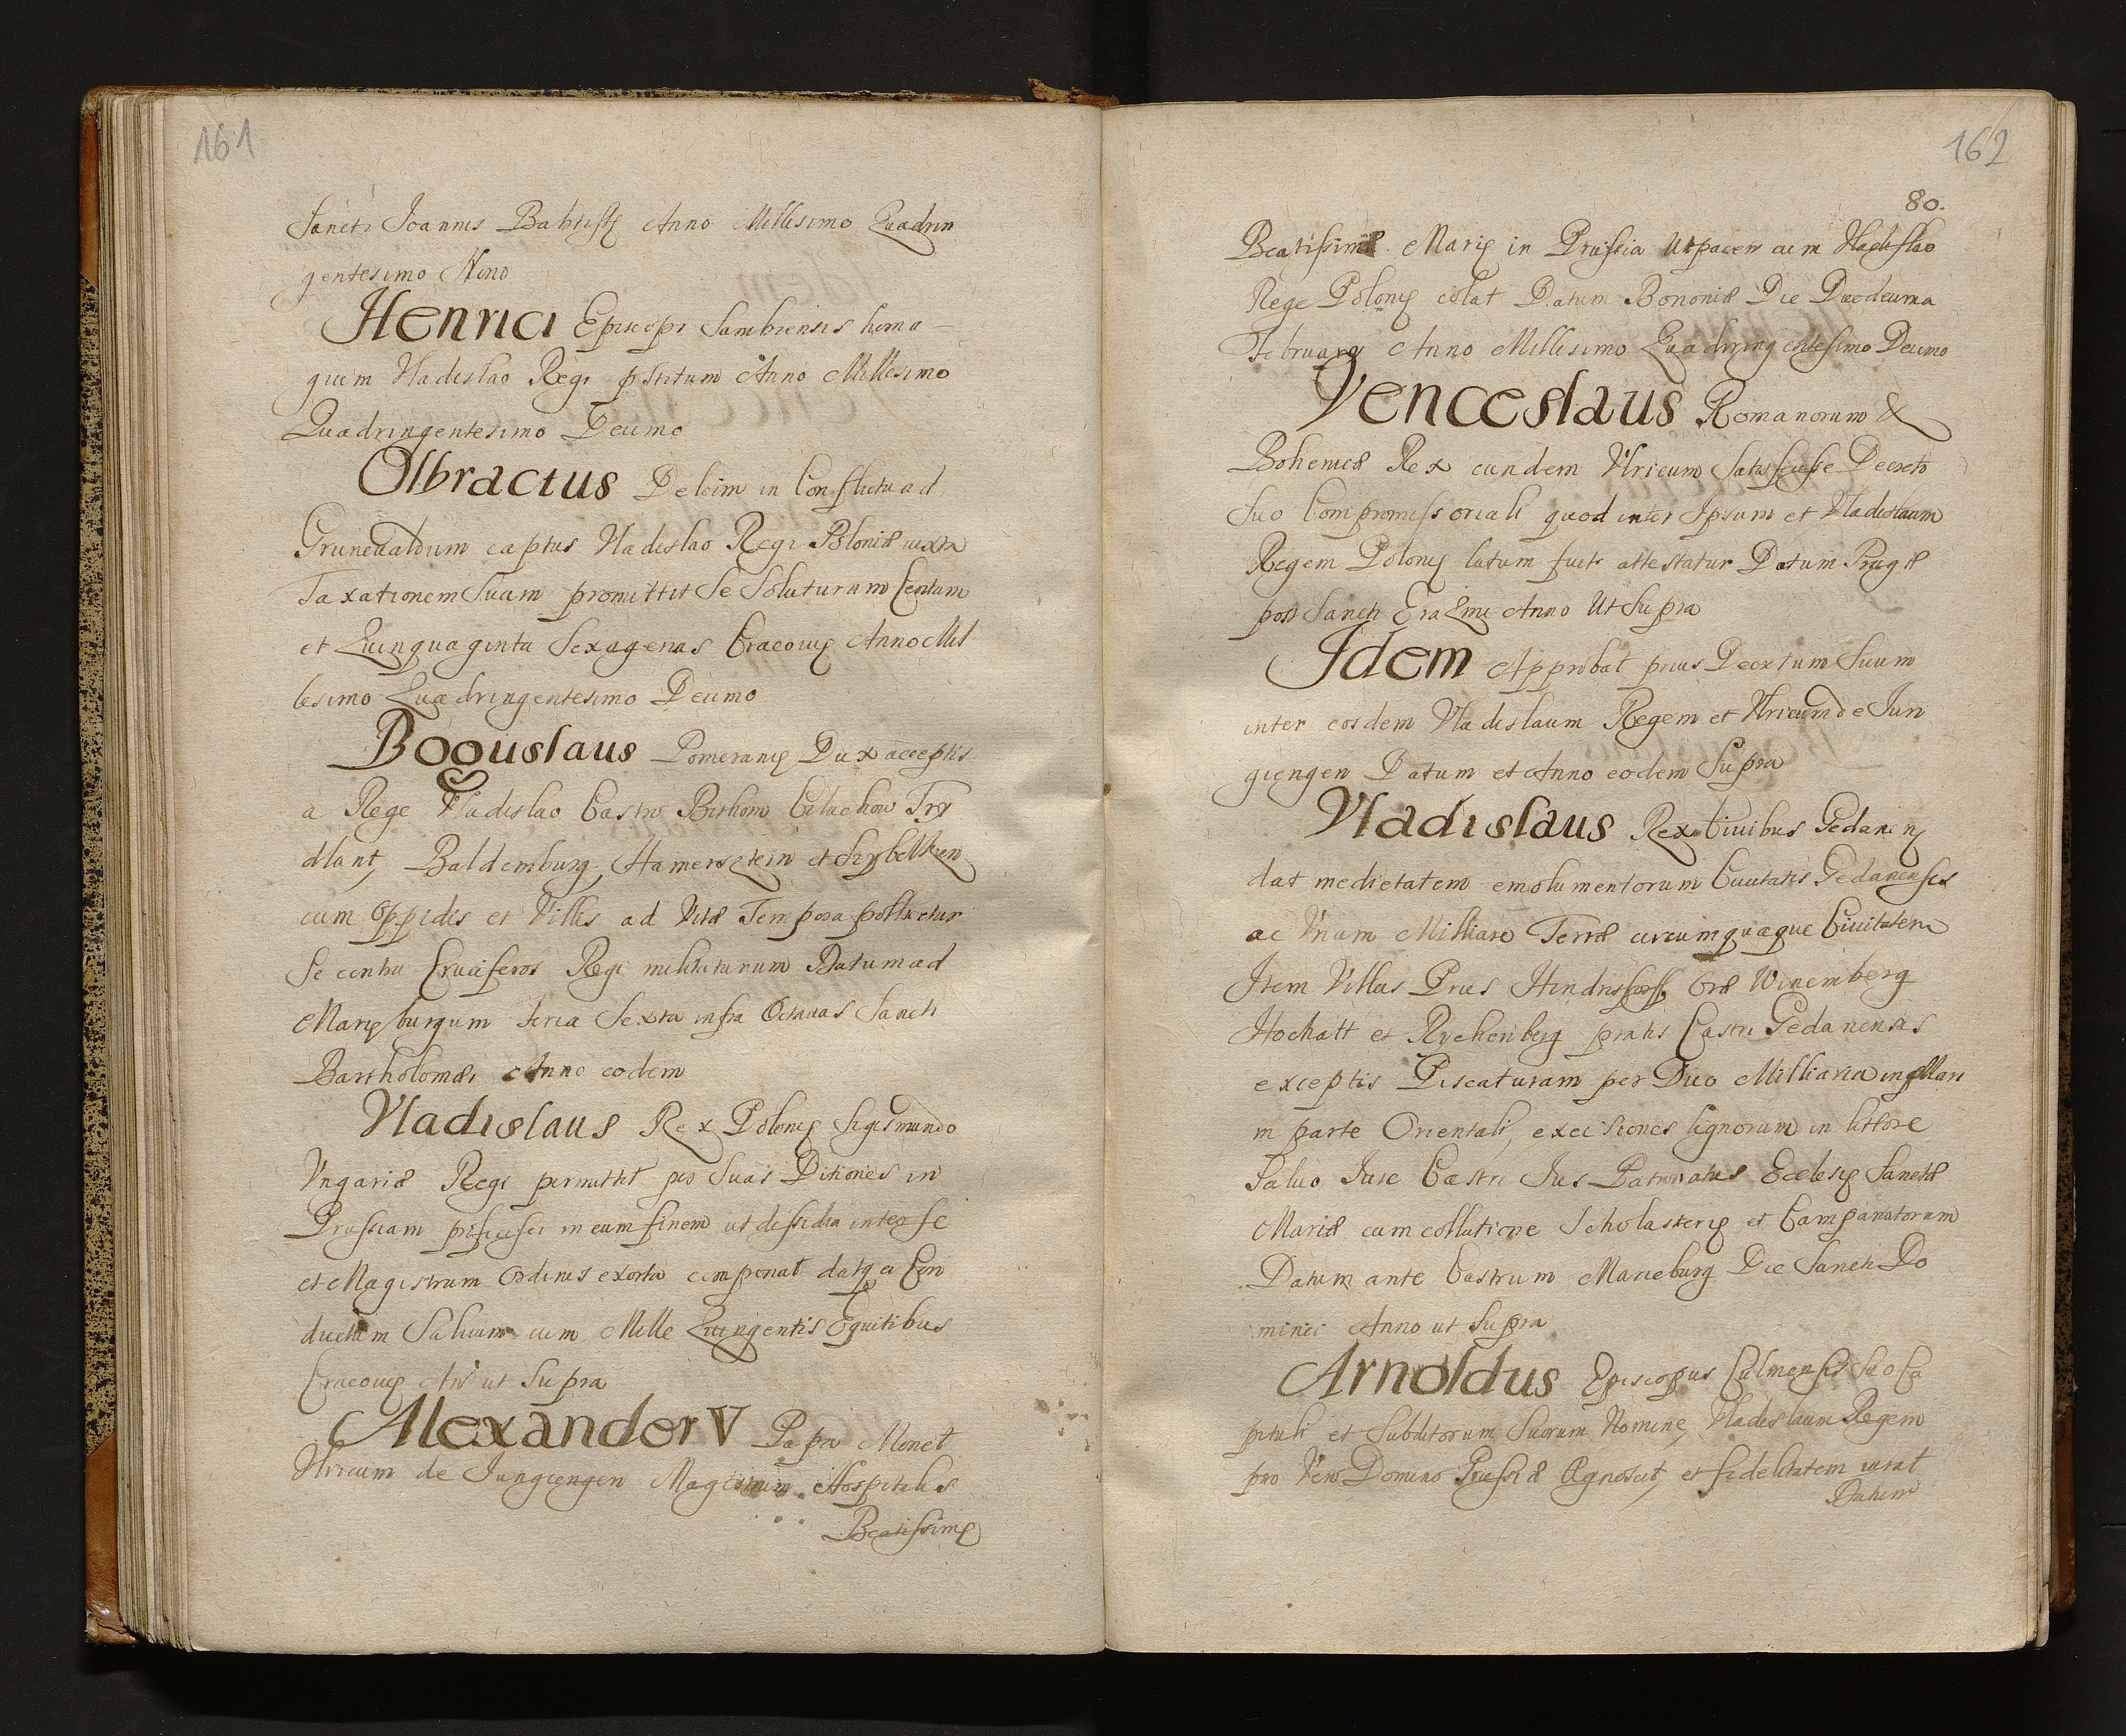 161
Sancti Joannis Babtistę Anno Millesimo Quadrin
gentesimo Nono
Henrici Episcopi Sambiensis homa-
gium Vladislao Regi pstitum Anno Millesimo
Quadringentesimo Decimo
Olbractus Deloim in Conflictu ad
Grunevaldum captus Vladislao Regi Poloniæ iuxta
Taxationem Suam promittit Se Soluturum Centum
et Quinquaginta Sexagenas Cracovię Anno Mil
lesimo Quadringentesimo Decimo
Boguslaus Pomeranię Dux acceptis
a Rege Vladislao Castro Bithom Człuchow Fry
dlant, Baldemburg, Hamersztein et
cum Oppidis et Villis ad Vitæ Tempora pollicetur
Se contra Cruciferos Regi militaturum Datum ad
Marięburgum feria Sexta infra Octavas Sancti
Bartholomæi Anno eodem
Vladislaus Rex Polonię Sigismundo
Ungariæ Regi permittit per Suas Ditiones in
Prussiam proficisci in eum finem ut dissidia inter se
et Magistrum Ordinis exorta componat datq ei Con
ductum Salvum cum Mille Quingentis Equitibus
Cracovię Ao ut Supra
Alexander V Papa Monet
Ulricum de Jungiengen Magistrum Hospitalis
Beatissimę
162
80.
Beatissimæ Marię in Prussia Ut pacem cum Vladislao
Rege Polonię colat Datum Bononiæ Die Duodecima
February Anno Millesimo Quadringentesimo Decimo
Venceslaus Romanorum &
Bohemiæ Rex eundem Ulricum Satisfecisse Decreto
Suo Compromissoriali quod inter Ipsum et Vladislaum
Regem Polonię latum fuit attestatur Datum Pragæ
post Sancti Erazmi Anno Ut Supra
Idem Approbat prius Decretum Suum
inter eosdem Vladislaum Regem et Ulricum de Jun
giengen Datum et Anno eodem Supra
Vladislaus Rex Civibus Gedanen
dat medietatem emolumentorum Civitatis Gedanensis
ac Unum Milliare Terræ circumquaque Civitatem
Item Villas Prus Hindrisdorff, Oræ Winemberg
Hochatt et Rychenberg pratis Castri Gedanensis
exceptis Piscaturam per Duo Milliaria in Mari
in parte Orientali, excisiones lignorum in littore
Salvo Jure Castri Jus Patronatus Eclesię Sanctæ
Mariæ cum collatione Scholasterię et Campanatorum
Datum ante Castrum Marieburg Die Sancti Do
minici Anno ut Supra
Arnoldus Episcopus Culmensis Suo Ca
pituli et Subditorum Suorum Nomine, Vladislaum Regem
pro Vero Domino Prussiæ Agnoscit, et fidelitatem iurat
Datum